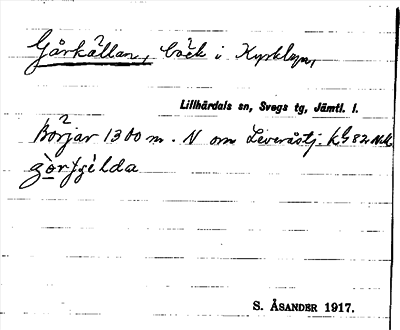 Gårkällan, bäck i Kyrkbyn,
Lillhärdals sn, Svegs tg, Jämtl. l.
Börjar 1300 m. N om Leveråstj.
S. ÅSANDER 1917.